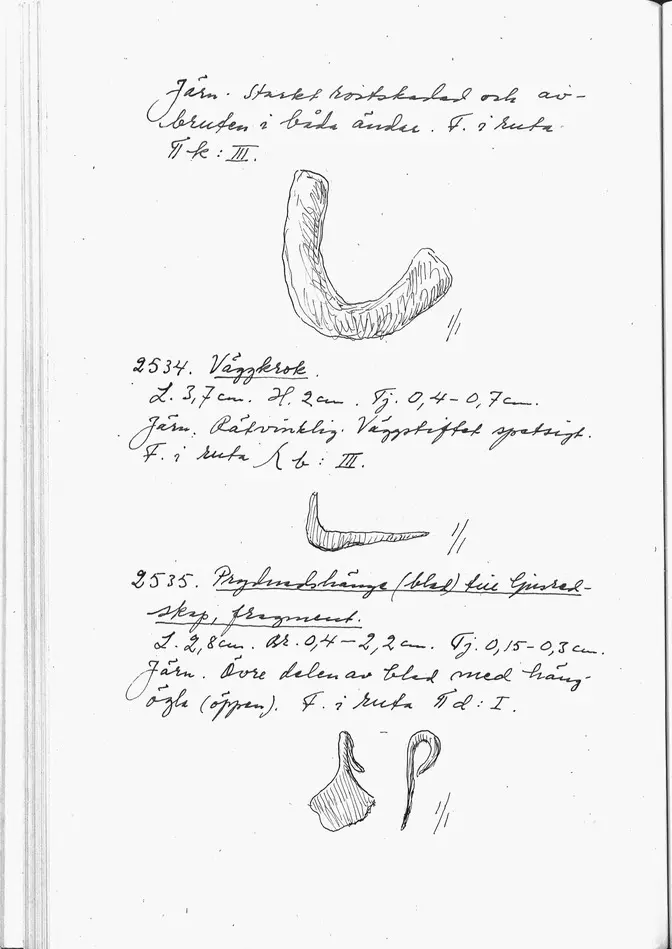 Järn. Starkt rostskadad och av-
bruten i båda ändar. F. i ruta
π k : III.
1/1
2534. Väggkrok.
L. 3,7 cm. H. 2 cm. Tj. 0,4-0,7 cm.
Järn. Rätvinklig. Väggstiftet spetsigt.
F. i ruta b : III.
1/1
2535. Prydnadshänge (blad) till ljusred-
skap, fragment.
L. 2,8 cm. Br. 0,4-2,2 cm. Tj. 0,15-0,3 cm.
Järn. Övre delen av blad med häng-
ögla (öppen). F. i ruta π d : I.
1/1